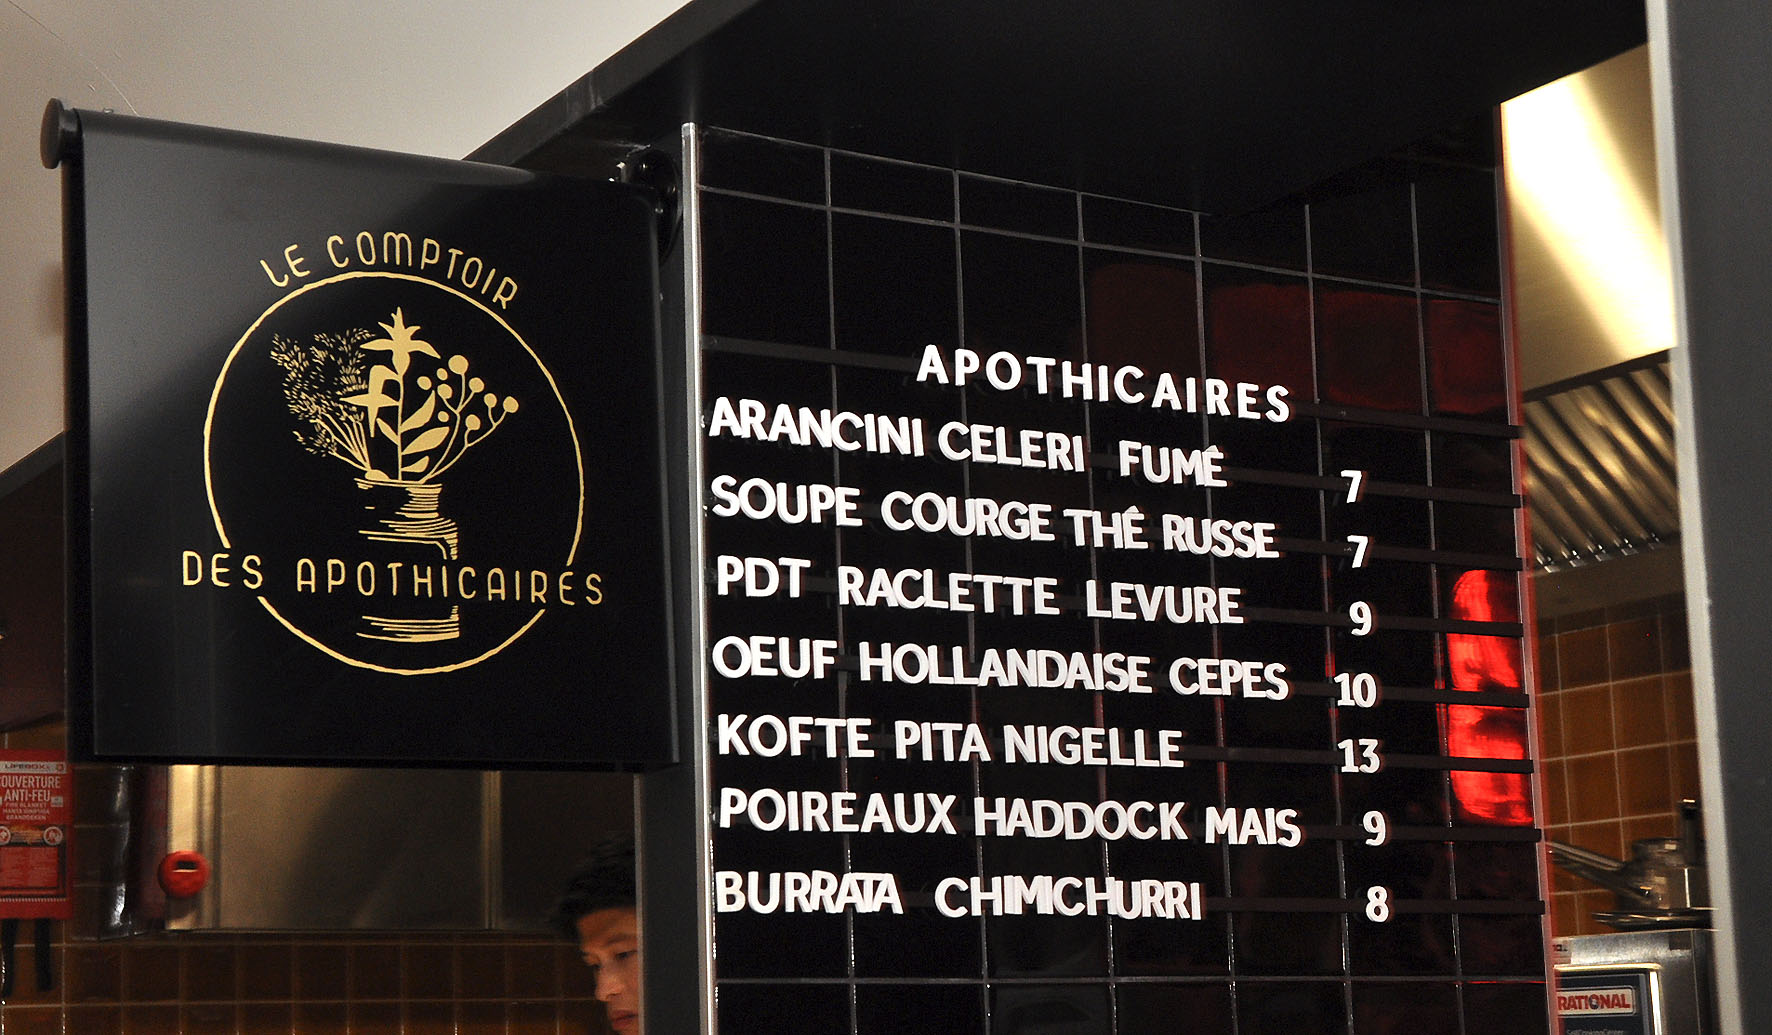 LE COMPTOIR
DES APOTHICAIRES
APOTHICAIRES
ARANCINI CELERI FUMÊ 7
SOUPE COURGE THÊ RUSSE 7
PDT RACLETTE LEVURE 9
OEUF HOLLANDAISE CEPES 10
KOFTE PITA NIGELLE 13
POIREAUX HADDOCK MAIS 9
BURRATA CHIMICHURRI 8
LIFEBOX
COUVERTURE
ANTI-FEU
FIRE BLANKET
RATIONAL